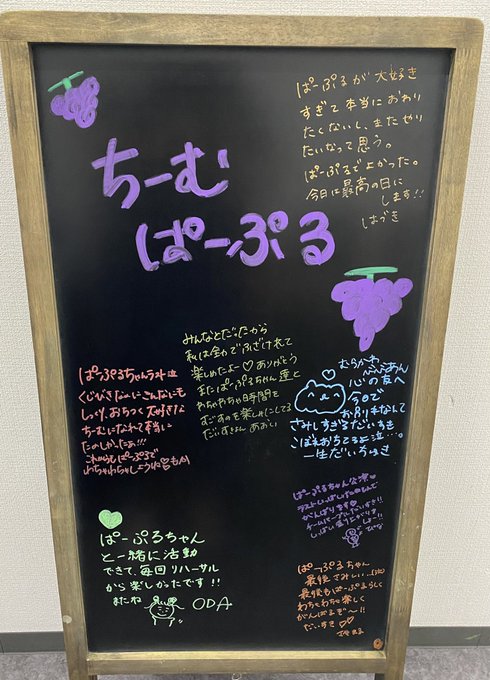 ちーむ
ぱーぷる
ぱーぷるが大好き
すぎて本当におわり
たくないし、またやり
たいなって思う。
ぱーぷるでよかった。
今日は最高の日に
します!!
はづき
みんなとだったから
私は全力でふざけれて
楽しめたよー♡ありがとう
またぱーぷるちゃん達と
わちゃわちゃ時間を
すごすのを楽しみにしてる
だいすきよん あおい
むらかわ
べべあん
心の友へ
今日で
お別れなんて
さみしすぎるだいすき
こぼれおちてるよ泣…。
一生だいすき
ぱーぷるちゃんラスト泣
くじびきなのにこんなにも
しっくり、おちつく大好きな
ちーむになれて本当に
たのしかったぁ!!!
これからもぱーぷるで
わちゃわちゃしようね
ぱーぷるちゃん公演♡
ラストいっぱい
がんばります♡
チームパープルだいすき!!
いっぱい盛り上がりま
しょー!!
ぱーぷるちゃん
と一緒に活動
できて、毎回リハーサル
から楽しかったです!!
またね
ODA
ぱーぷるちゃん
最後さみしい…
最後もぱーぷるらしく
わちゃわちゃ楽しく
がんばるぞ〜!!
だいすき♡♡